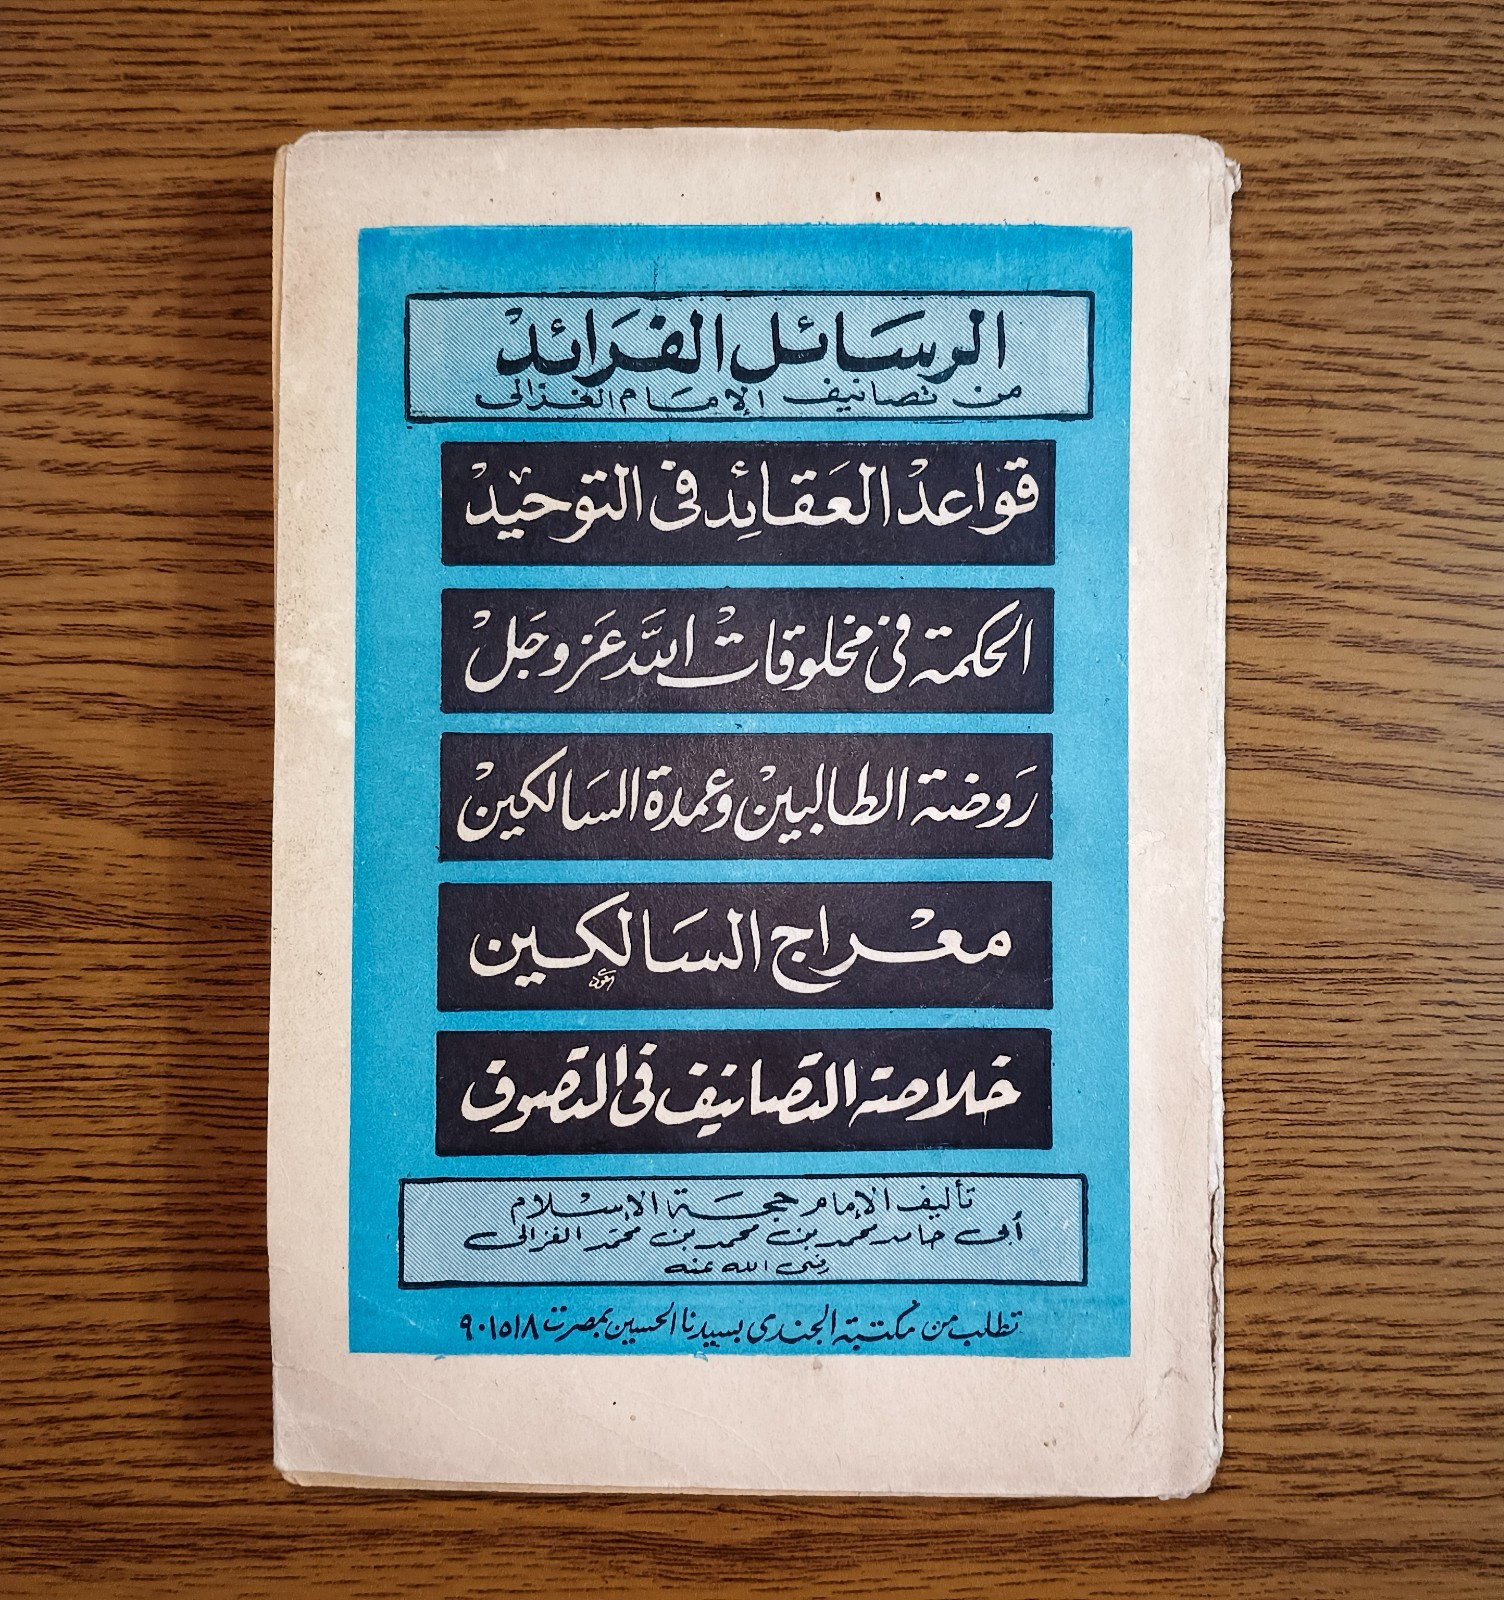 الرسَائل الفَرَائد
من تصانيف الإمام الغزالى
قواعد العَقائِد فى التوحيد
الحكمة فى مخلوقات اللَّه عَز وجَل
رَوضة الطالبين وعمدة السَالكين
معراج السَالكين
خلاصة التصانيف فى التصوف
تأليف الإمام حجة الاسلام
أبى حامد محمد بن محمد بن محمد الغزالى
رضى الله عنه
تطلب من مكتبة الجندى بسيدنا الحسين بمصر ت ٩٠١٥١٨